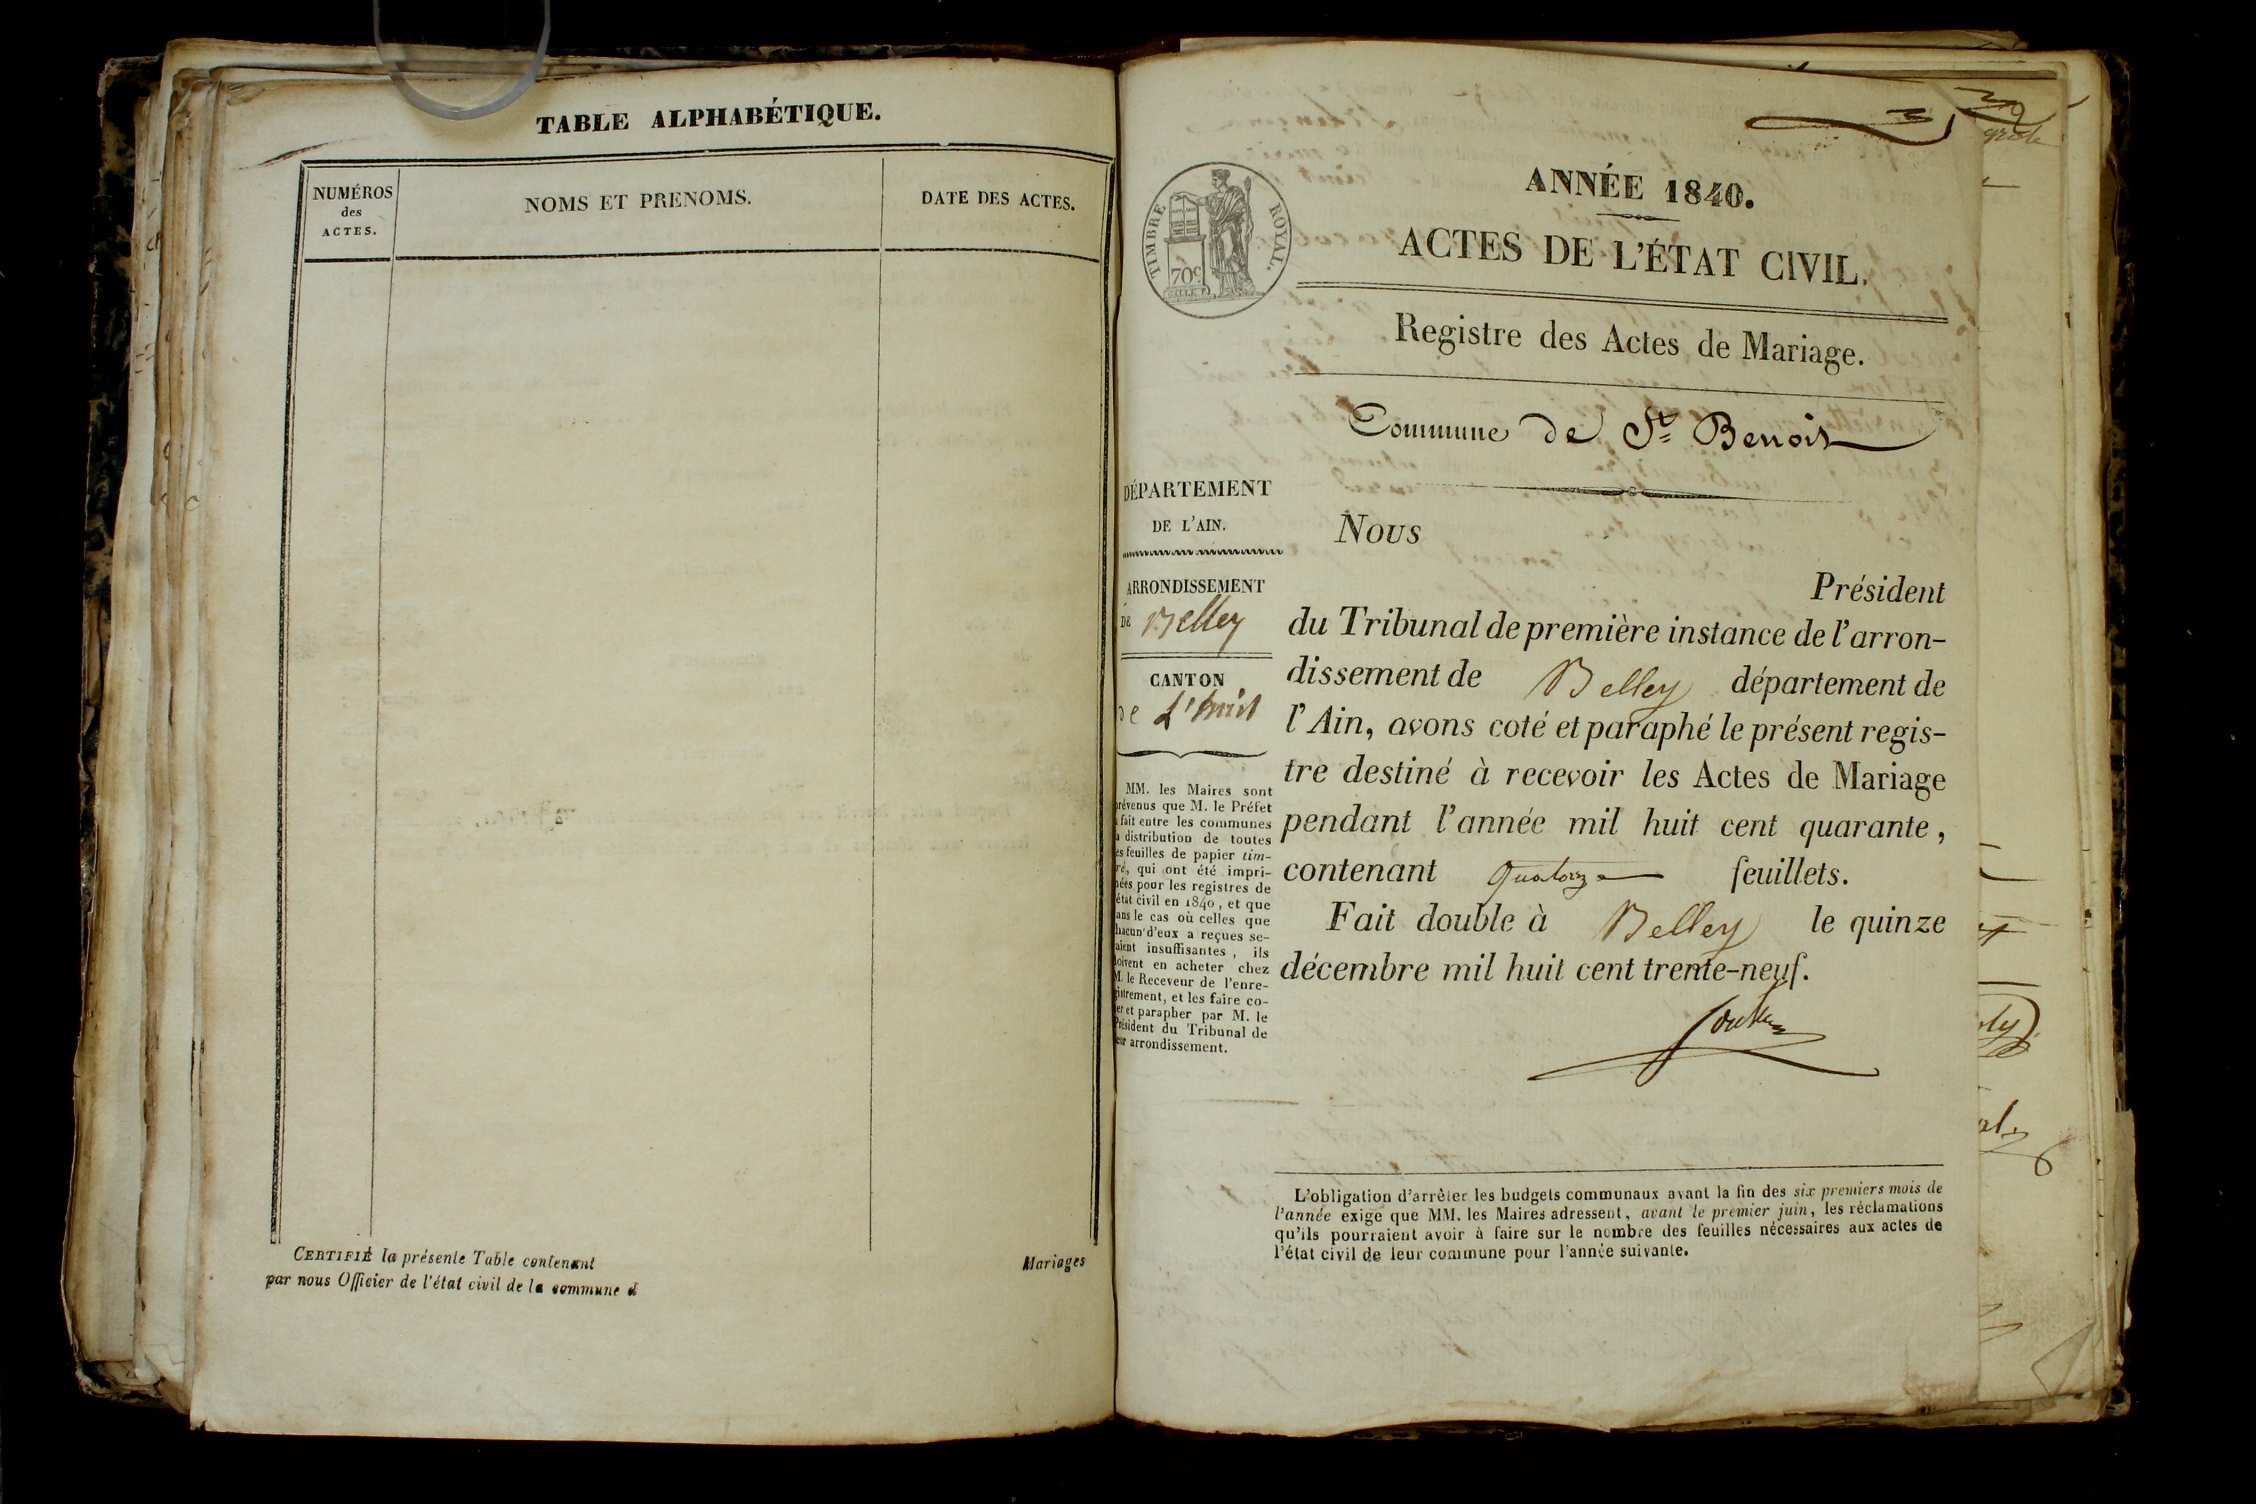 TABLE ALPHABÉTIQUE.
NUMÉROS
des
ACTES.
NOMS ET PRENOMS.
DATE DES ACTES.
CERTIFIÉ la présente Table contenant Mariages
par nous Officier de l'état civil de la commune d
TIMBRE ROYAL.
70c
ANNÉE 1840.
ACTES DE L'ÉTAT CIVIL.
Registre des Actes de Mariage.
Commune de St Benoit
DÉPARTEMENT
DE L'AIN.
ARRONDISSEMENT
DE Belley
CANTON
de L'huis
MM. les Maires sont
prévenus que M. le Préfet
a fait entre les communes
la distribution de toutes
les feuilles de papier tim-
bré, qui ont été impri-
mées pour les registres de
l'état civil en 1840, et que
dans le cas où celles que
chacun d'eux a reçues se-
raient insuffisantes, ils
doivent en acheter chez
M. le Receveur de l'enre-
gistrement, et les faire co-
ter et parapher par M. le
Président du Tribunal de
leur arrondissement.
Nous
Président
du Tribunal de première instance de l'arron-
dissement de Belley département de
l'Ain, avons coté et paraphé le présent regis-
tre destiné à recevoir les Actes de Mariage
pendant l'année mil huit cent quarante,
contenant quatorze feuillets.
Fait double à Belley le quinze
décembre mil huit cent trente-neuf.
L'obligation d'arrêter les budgets communaux avant la fin des six premiers mois de
l'année exige que MM. les Maires adressent, avant le premier juin, les réclamations
qu'ils pourraient avoir à faire sur le nombre des feuilles nécessaires aux actes de
l'état civil de leur commune pour l'année suivante.